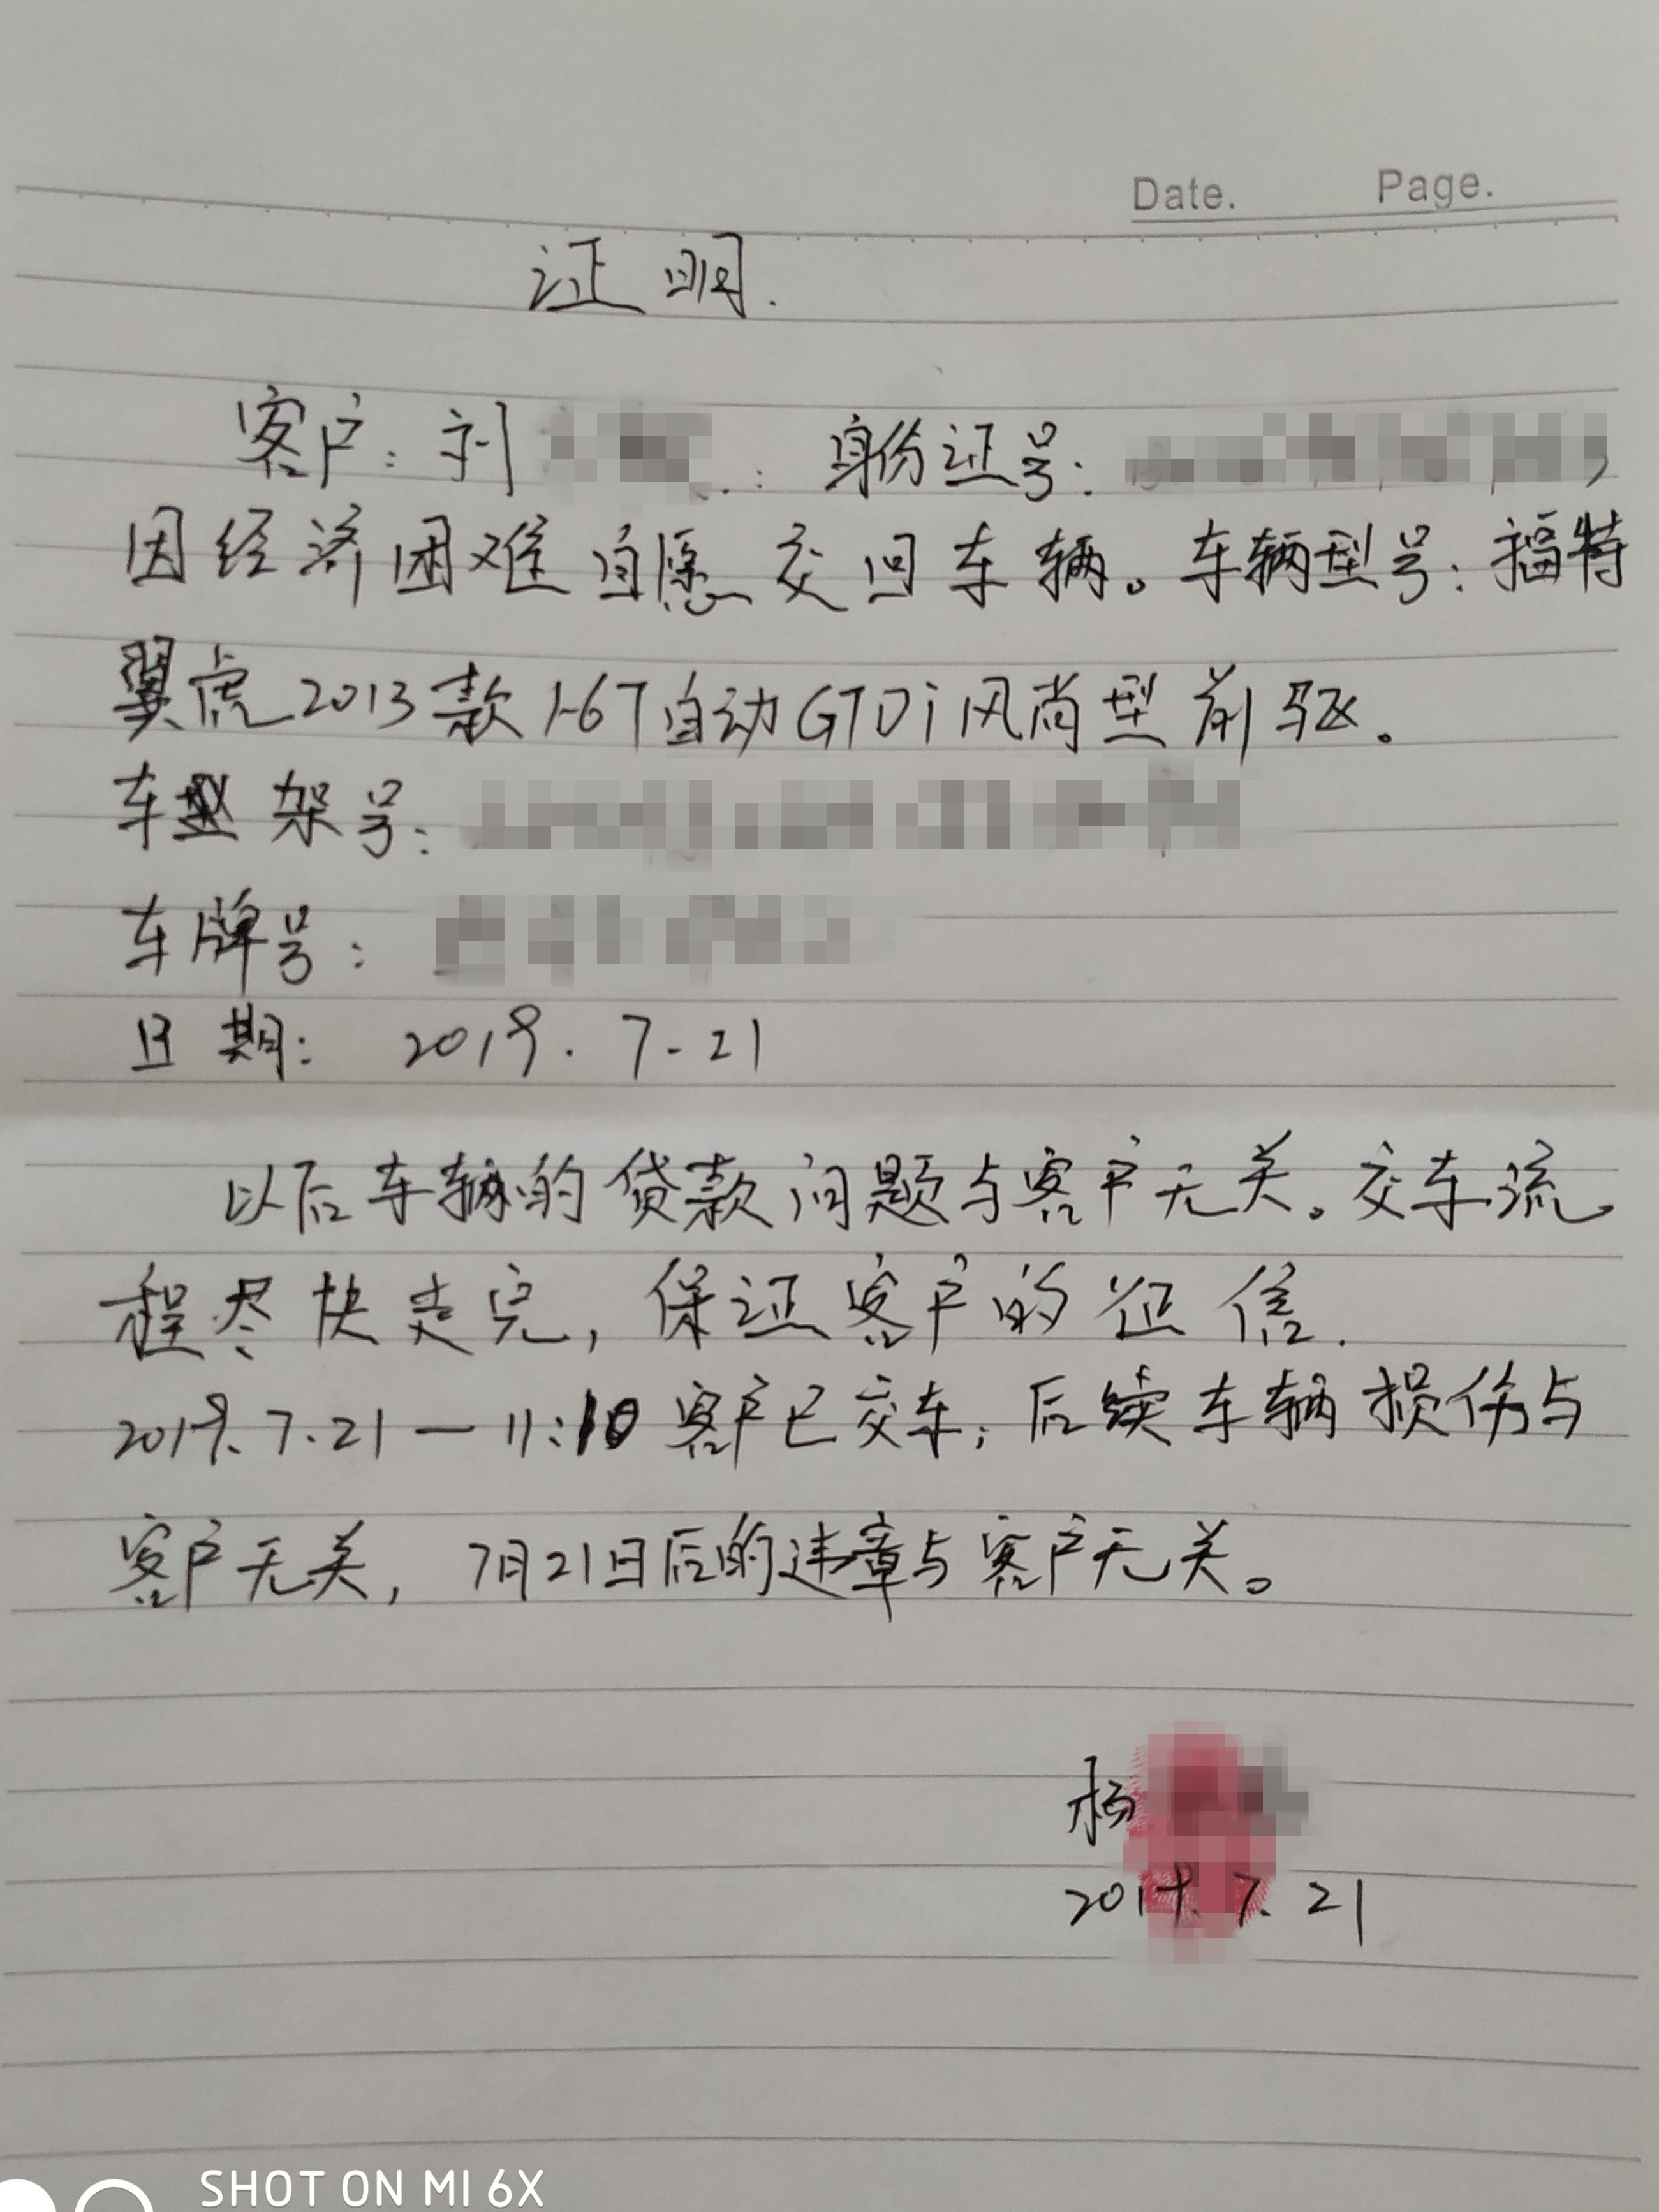 Date. Page.
证明.
客户：刘 身份证号：
因经济困难自愿交回车辆。车辆型号：福特
翼虎2013款1.6T自动GTDi风尚型前驱。
车架号：
车牌号：
日期： 2019.7.21
以后车辆的贷款问题与客户无关。交车流
程尽快走完，保证客户的征信.
2019.7.21—11:10客户已交车；后续车辆损伤与
客户无关，7月21日后的违章与客户无关。
杨
2019.7.21
SHOT ON MI 6X